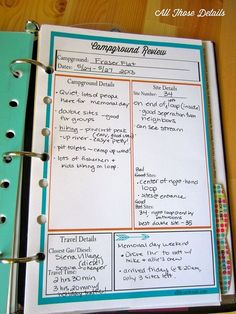 All Those Details
Campground Review
Campground: Fraser Flat
Dates: 5/24-5/27 2013
Campground Details
• Quiet, lots of people
here for memorial day
• double sites - good
for groups
• hiking - pinecrest peak
(easy)
up river - (easy, pretty)
• pit toilets - 
• lots of fishermen +
kids biking in loop
Site Details
Site Number: 34
on end of loop (inside)
• good separation from
neighbors
• can see stream
Bad Sites:
• center of right-hand
loop
• sites @ entrance
Good
Sites:
34, right loop end by
bathrooms
best double site - 35
Travel Details
Closest Gas/Diesel:
Sierra Village
(diesel)
Travel Time:
2 hrs 30 min
3 hrs 20 min w/
Memorial day weekend
• Drove 1hr to salt w/
mike + allie's crew
• arrived friday @ 8:20am,
only 3 sites left.